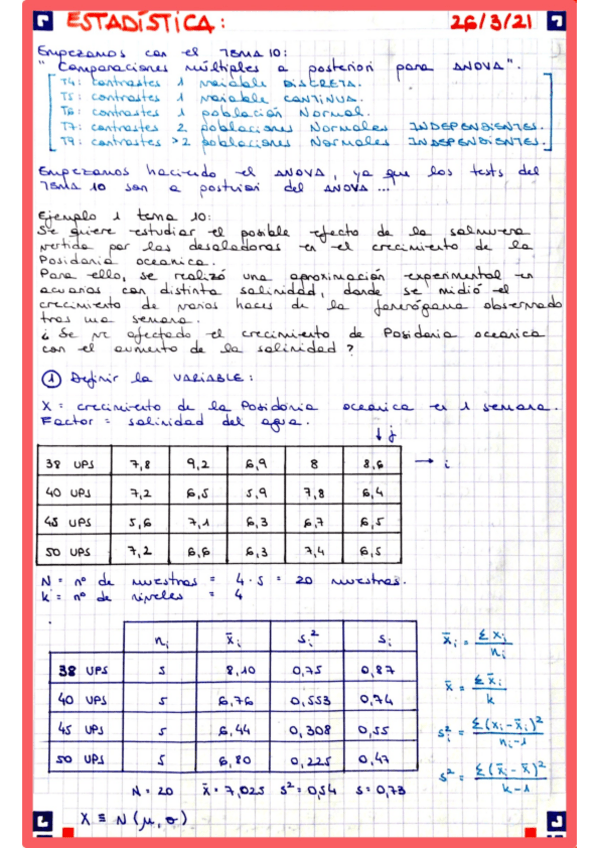 ESTADÍSTICA: 26/3/21
Empezamos con el TEMA 10:
"Comparaciones múltiples a posteriori para ANOVA".
T4: contrastes 1 variable DISCRETA.
T5: contrastes 1 variable CONTINUA.
T6: contrastes 1 población Normal.
T7: contrastes 2 poblaciones Normales INDEPENDIENTES.
T9: contrastes >2 poblaciones Normales INDEPENDIENTES.
Empezamos haciendo el ANOVA, ya que los tests del
TEMA 10 son a posteriori del ANOVA ...
Ejemplo 1 tema 10:
Se quiere estudiar el posible efecto de la salmuera
vertida por las desaladoras en el crecimiento de la
Posidonia oceanica.
Para ello, se realizó una aproximación experimental en
acuarios con distinta salinidad, donde se midió el
crecimiento de varios haces de la fanerógama observado
tras una semana.
¿ Se ve afectado el crecimiento de Posidonia oceanica
con el aumento de la salinidad ?
1 Definir la VARIABLE:
X = crecimiento de la Posidonia oceanica en 1 semana.
Factor = salinidad del agua.
↓ j
38 UPS 7,8 9,2 6,9 8 8,6 → i
40 UPS 7,2 6,5 5,9 7,8 6,4
45 UPS 5,6 7,1 6,3 6,7 6,5
50 UPS 7,2 6,6 6,3 7,4 6,5
N = nº de muestras = 4·5 = 20 muestras.
k = nº de niveles = 4
nᵢ x̄ᵢ sᵢ² sᵢ
38 UPS 5 8,10 0,75 0,87
40 UPS 5 6,76 0,553 0,74
45 UPS 5 6,44 0,308 0,55
50 UPS 5 6,80 0,225 0,47
N = 20 x̄ = 7,025 s² = 0,54 s = 0,73
x̄ᵢ = Σxⱼ / nᵢ
x̄ = Σx̄ᵢ / k
sᵢ² = Σ(xᵢ - x̄ᵢ)² / nᵢ-1
s² = Σ(x̄ᵢ - x̄)² / k-1
X ≡ N(μ, σ)